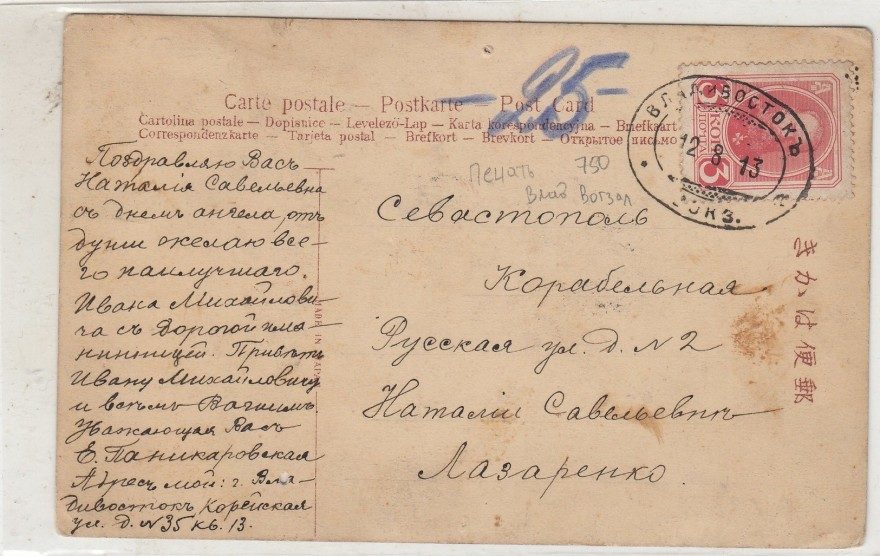 -25-
Carte postale — Postkarte — Post Card
Cartolina postale — Dopisnice — Levelező-Lap — Karta korespondencyjna — Briefkaart
Correspondenzkarte — Tarjeta postal — Brefkort — Brevkort — Открытое письмо
ВЛАДИВОСТОКЪ
12 8 13
ВОКЗ.
3
КОП
Печать 750
Влад Вокзал
Поздравляю Васъ
Наталія Савельевна
съ днемъ ангела, отъ
души желаю все-
го наилучшаго.
Ивана Михайлови-
ча съ дорогой има-
нинницей. Приветъ
Ивану Михайловичу
и всѣмъ Вашимъ.
Уважающая Васъ
Е. Паникаровская
Адресъ мой: г. Вла-
дивостокъ Корейская
ул. д. N35 кв. 13.
Севастополь
Корабельная
Русская ул. д. N 2
Наталіи Савельевнѣ
Лазаренко
きかは便郵
MADE IN